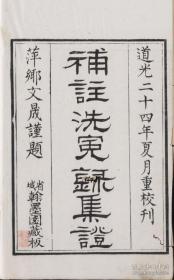 道光二十四年夏月重校刊
補註洗冤録集證
萍鄉文晟謹題
省城翰墨園藏板